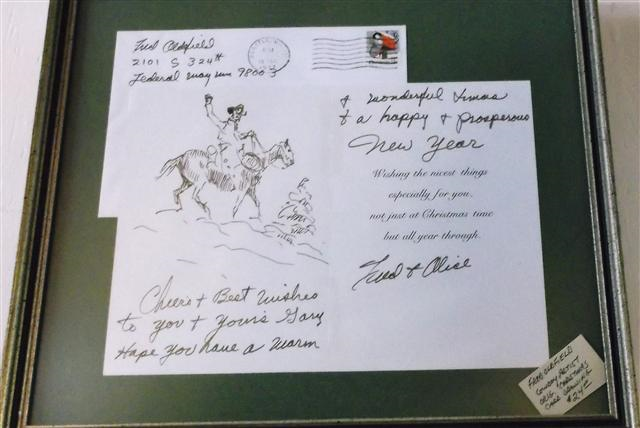 Fred Oldfield
2101 S 324th
Federal Way Wn 98003
Cheers + Best Wishes
to you + yours Gary
Hope you have a warm
+ wonderful Xmas
+ a happy + prosperous
New Year
Wishing the nicest things
especially for you,
not just at Christmas time
but all year through.
Fred + Alice
FRED OLDFIELD
COWBOY ARTIST
ORIG CHRISTMAS
CARD DRAWING
$24.00